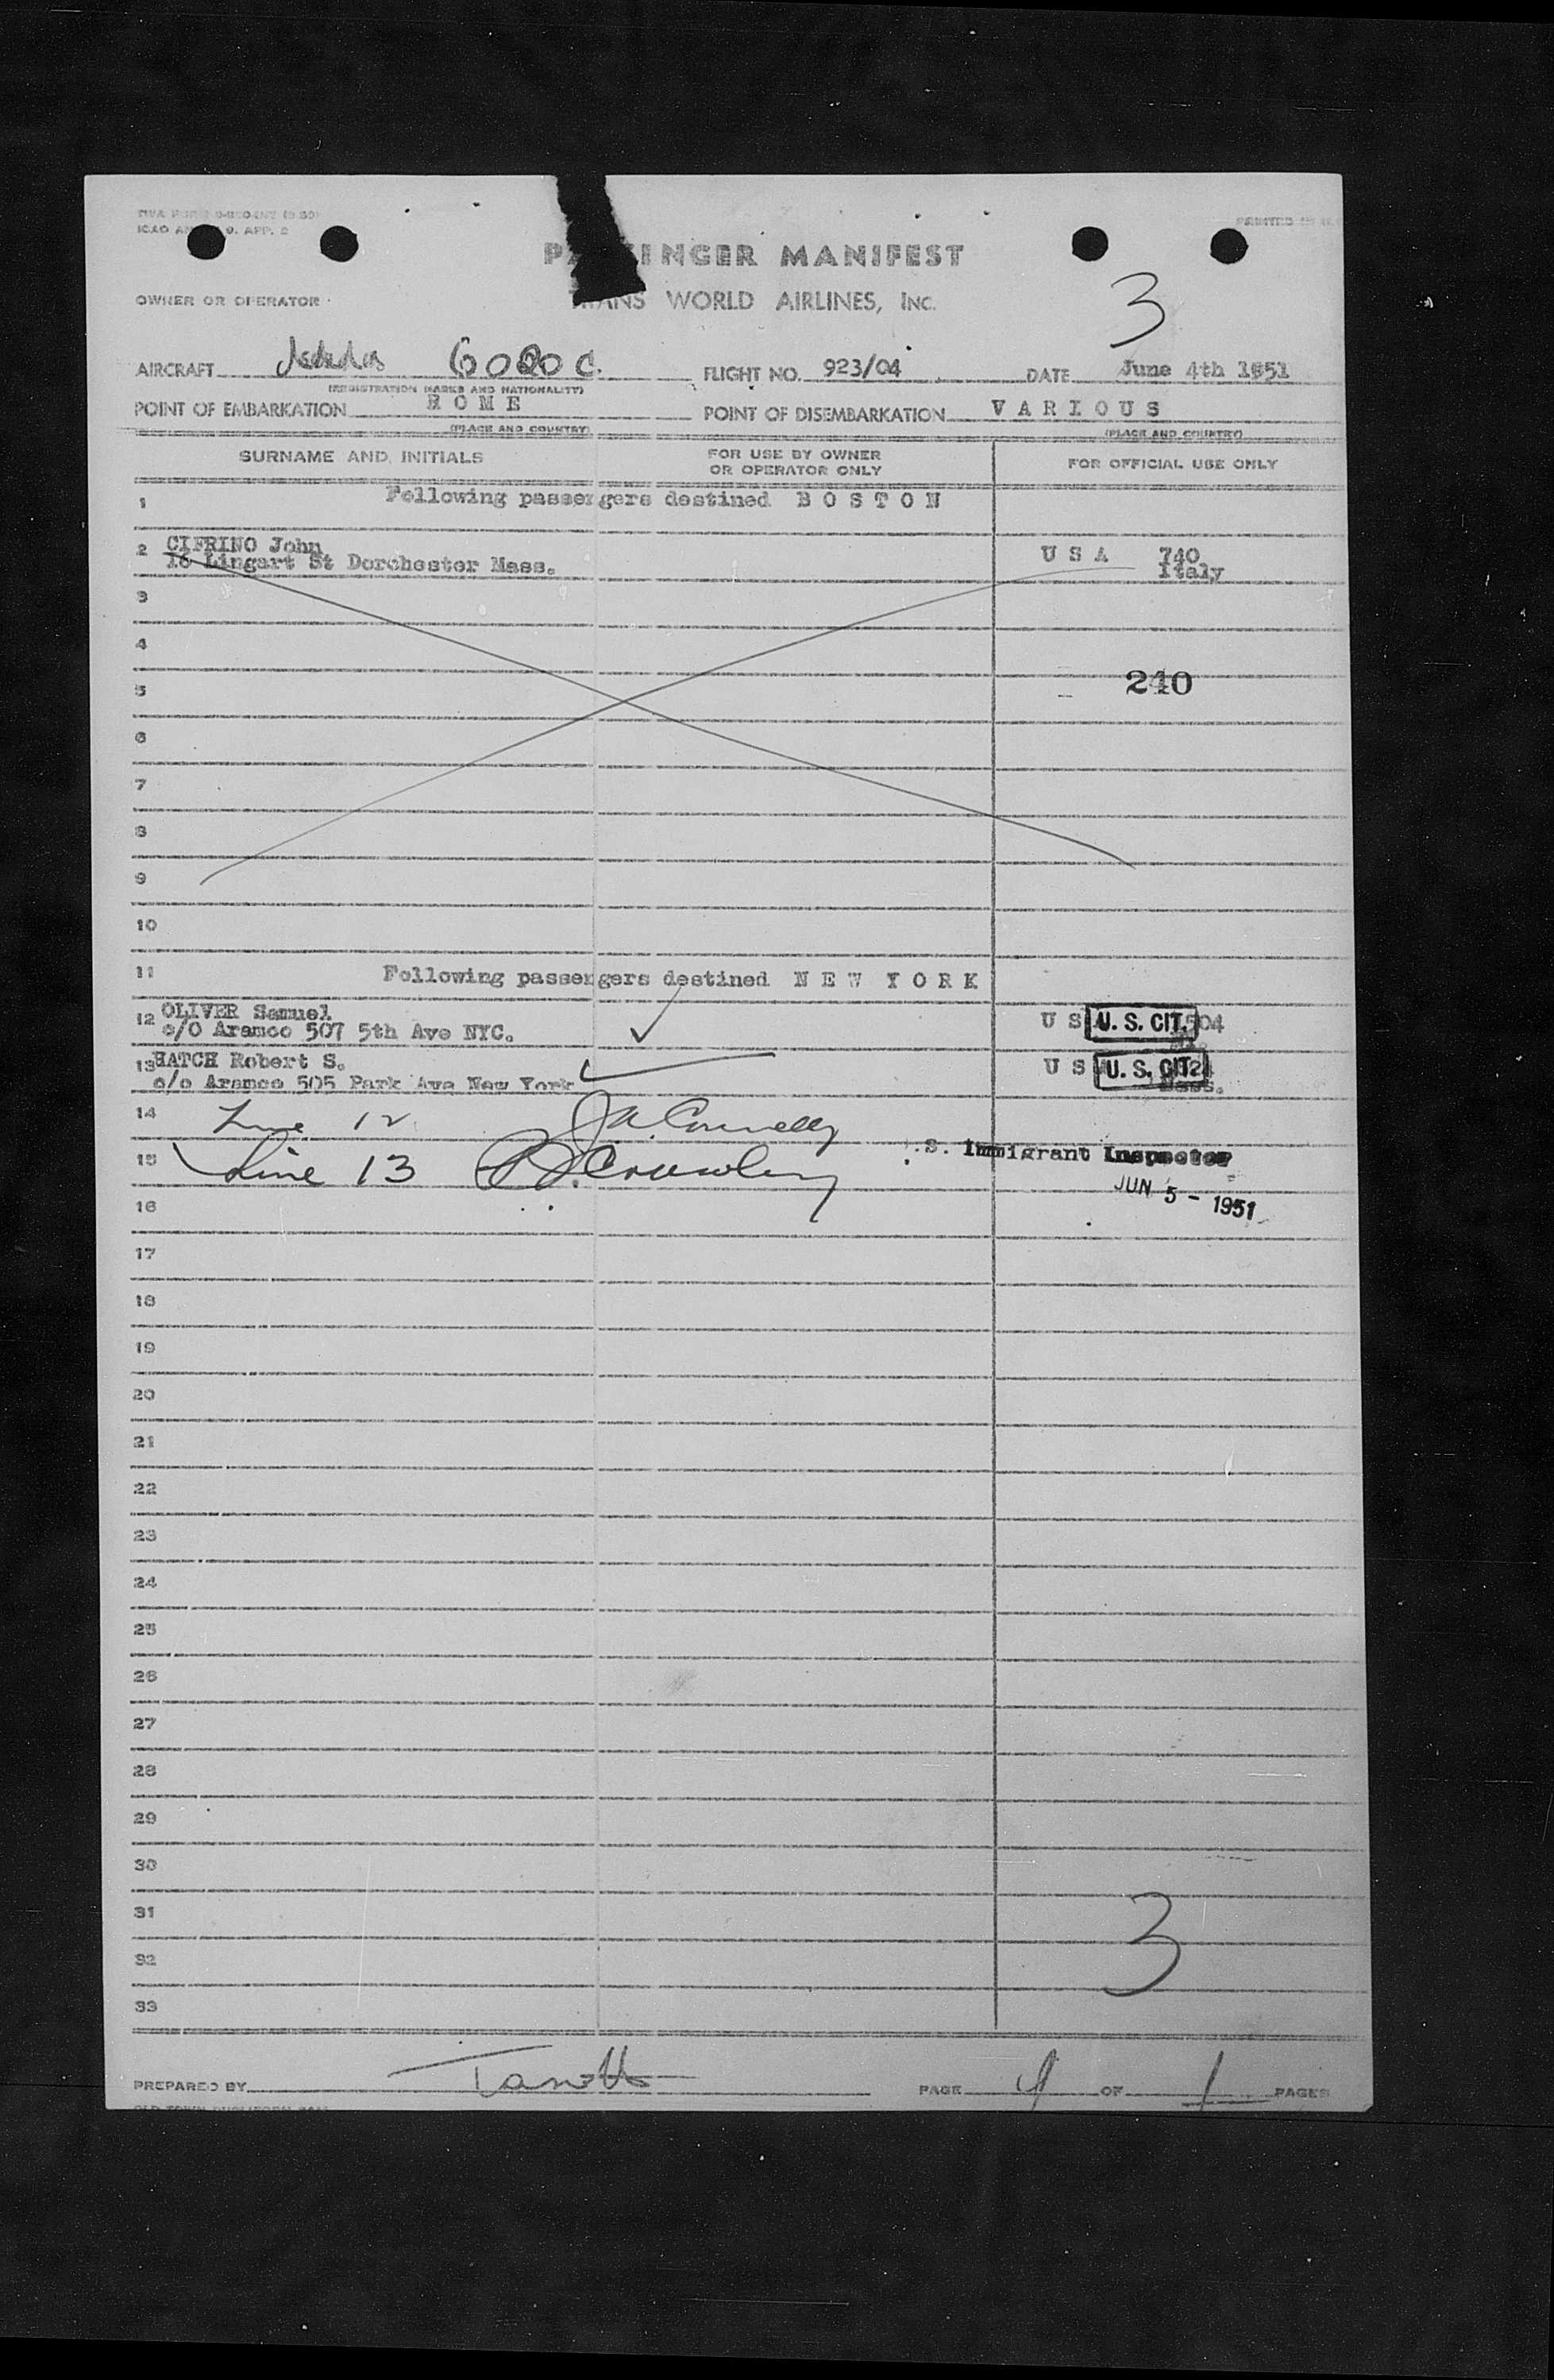 ICAO 9. APP. 2
PRINTED
PASSENGER MANIFEST
OWNER OR OPERATOR
TRANS WORLD AIRLINES, INC.
3
AIRCRAFT 6020 C. FLIGHT NO. 923/04 DATE June 4th 1951
(REGISTRATION MARKS AND NATIONALITY)
POINT OF EMBARKATION R O M E POINT OF DISEMBARKATION V A R I O U S
(PLACE AND COUNTRY) (PLACE AND COUNTRY)
SURNAME AND INITIALS FOR USE BY OWNER OR OPERATOR ONLY FOR OFFICIAL USE ONLY
1 Following passengers destined B O S T O N
2 CIFRINO John U S A 740
16 Lingart St Dorchester Mass. Italy
3
4
5 240
6
7
8
9
10
11 Following passengers destined N E W Y O R K
12 OLIVER Samuel U S U. S. CIT. 504
c/O Aramco 507 5th Ave NYC.
13 HATCH Robert S. U S U. S. CIT.
c/o Aramco 505 Park Ave New York Mass.
14 Line 12 J A. Connelly
15 Line 13 Crowley .S. Immigrant Inspector
JUN 5 - 1951
16
17
18
19
20
21
22
23
24
25
26
27
28
29
30
31
32 3
33
PREPARED BY PAGE 1 OF 1 PAGES